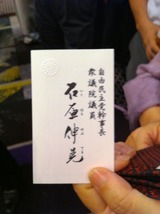 自由民主党幹事長
衆議院議員
石原伸晃